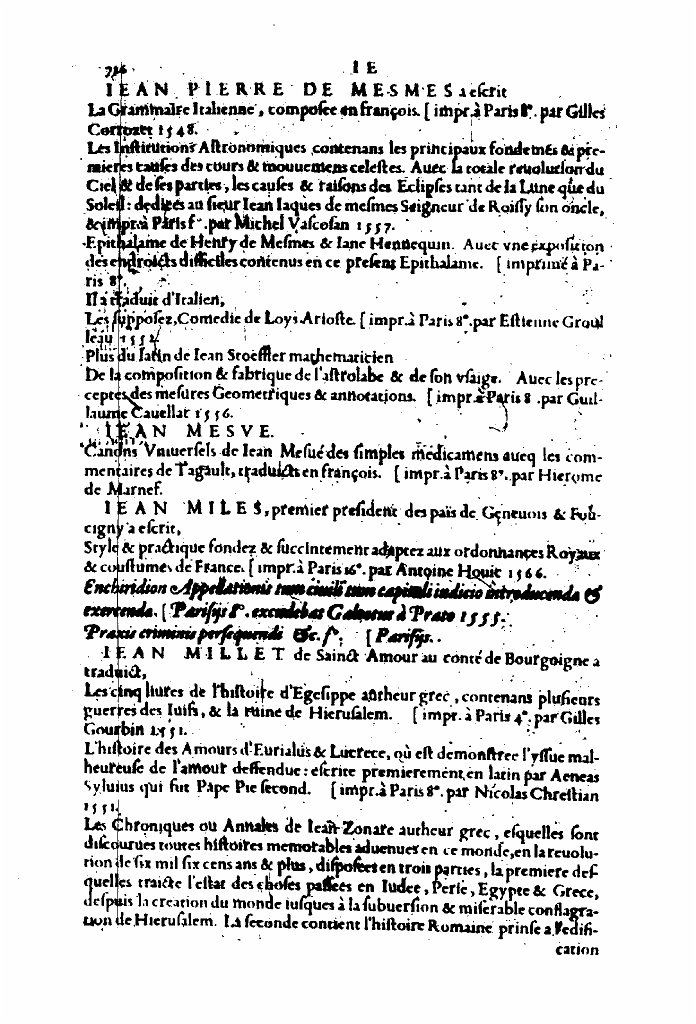 736 I E
IEAN PIERRE DE MESMES a escrit
La Grammaire Italienne, composee en françois. [impr. à Paris 8°. par Gilles
Corrozet 1548.
Les Institutions Astronomiques contenans les principaux fondemés & pre-
mieres causes des cours & mouuemens celestes. Auec la totale reuolution du
Ciel & de ses parties, les causes & raisons des Eclipses tant de la Lune que du
Soleil: dediées au sieur Iean Iaques de mesmes Seigneur de Roissy son oncle,
& impr. à Paris f°. par Michel Vascosan 1557.
Epithalame de Henry de Mesmes & Iane Hennequin. Auec vne exposition
des endroicts difficiles contenus en ce present Epithalame. [imprimé à Pa-
ris 8°.
Il a traduit d'Italien,
Les supposez, Comedie de Loys Arioste. [impr. à Paris 8°. par Estienne Groul
leau 1552.
Plus du latin de Iean Stoeffler mathematicien
De la composition & fabrique de l'astrolabe & de son vsaige. Auec les pre-
ceptes des mesures Geometriques & annotations. [impr. à Paris 8. par Guil-
laume Cauellat 1556.
IEAN MESVE.
Canons Vniuersels de Iean Mesué des simples medicamens aueq les com-
mentaires de Tagault, traduicts en françois. [impr. à Paris 8°. par Hierome
de Marnef.
IEAN MILES, premier president des païs de Geneuois & Fou-
cigny a escrit,
Style & practique fondez & succintement adaptez aux ordonnances Royaux
& coustumes de France. [impr. à Paris 16°. par Antoine Houic 1566.
Enchiridion Appellationis tum ciuili tum capitali iudicio introducenda &
exercenda. [Parisijs 8°. excudebat Galeotus à Prato 1555.
Praxis criminis persequendi &c. f°. [Parisijs.
IEAN MILLET de Sainct Amour au conté de Bourgoigne a
traduict,
Les cinq liures de l'histoire d'Egesippe autheur grec, contenans plusieurs
guerres des Iuifs, & la ruine de Hierusalem. [impr. à Paris 4°. par Gilles
Gourbin 1551.
L'histoire des Amours d'Eurialus & Lucrece, où est demonstree l'yssue mal-
heureuse de l'amour deffendue: escrite premierement en latin par Aeneas
Syluius qui fut Pape Pie second. [impr. à Paris 8°. par Nicolas Chrestian
1551.
Les Chroniques ou Annales de Iean Zonare autheur grec, esquelles sont
discourues toutes histoires memorables aduenues en ce monde, en la reuolu-
tion de six mil six cens ans & plus, disposees en trois parties, la premiere des
quelles traicte l'estat des choses passees en Iudee, Perse, Egypte & Grece,
despuis la creation du monde iusques à la subuersion & miserable conflagra-
tion de Hierusalem. La seconde contient l'histoire Romaine prinse a l'edifi-
cation